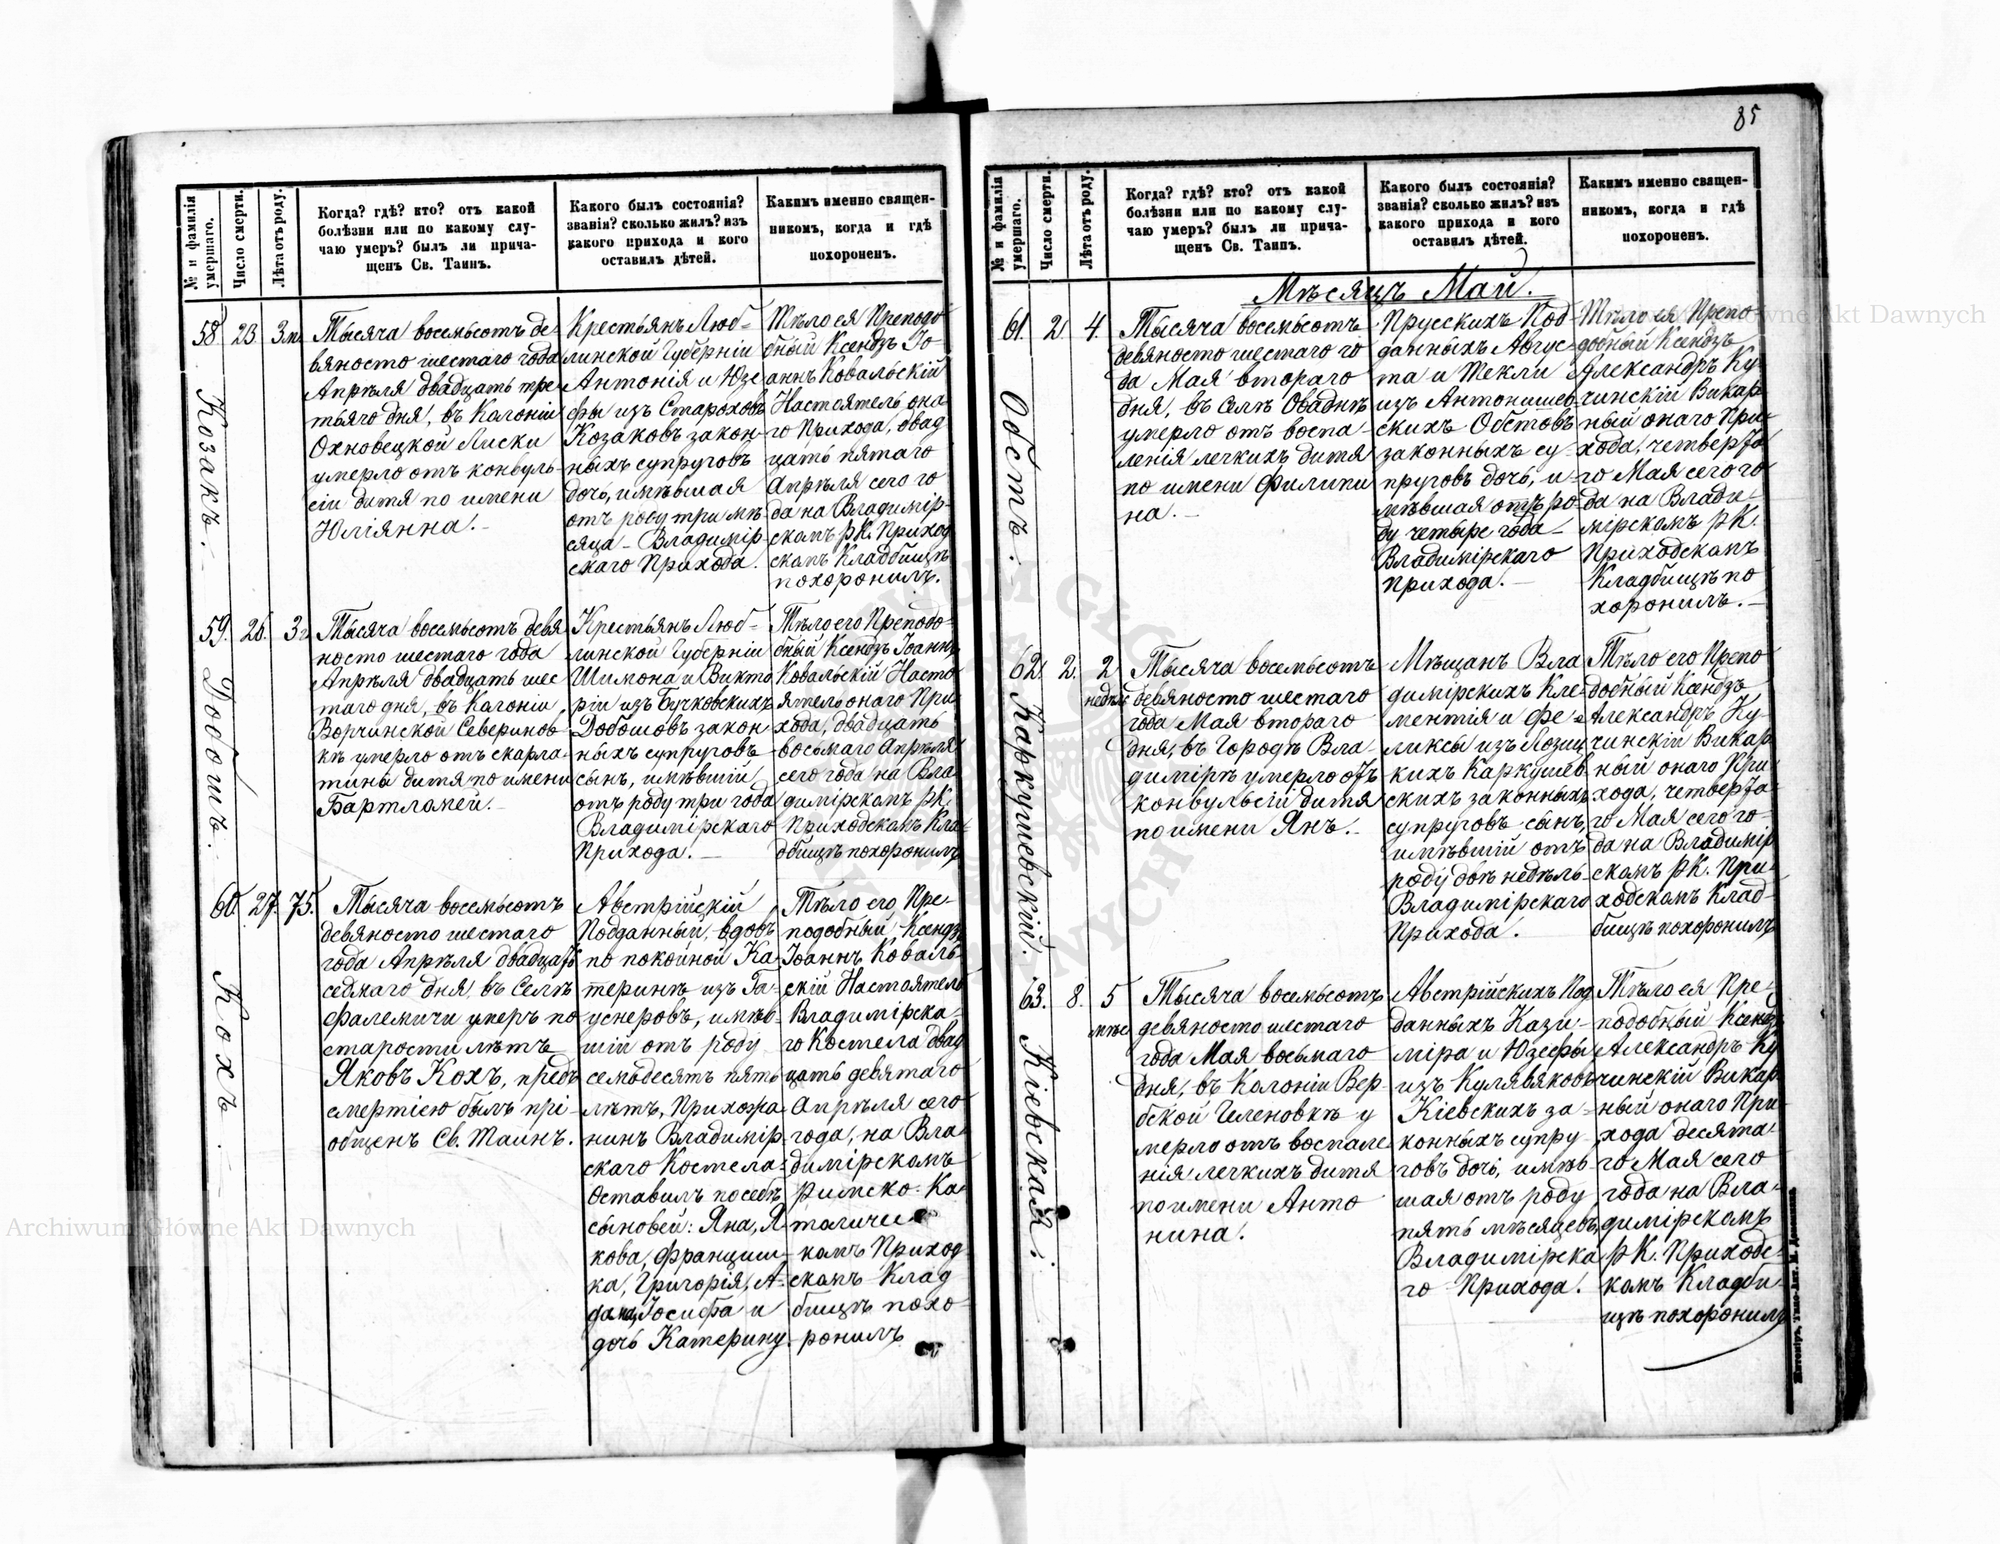 85
№ и фамилія умершаго.
Число смерти.
Лѣта отъ роду.
Когда? гдѣ? кто? отъ какой
болѣзни или по какому слу-
чаю умеръ? былъ ли прича-
щенъ Св. Таинъ.
Какого былъ состоянія?
званія? сколько жилъ? изъ
какого прихода и кого
оставилъ дѣтей.
Какимъ именно священ-
никомъ, когда и гдѣ
похороненъ.
58. 23. 3м.
Козакъ.
Тысяча восемьсотъ де-
вяносто шестаго года
Апрѣля двадцать тре-
тьяго дня, въ Колоніи
Охновецкой Лиски
умерло отъ конвуль-
сіи дитя по имени
Юліянна.
Крестьянъ Люб-
линской Губерніи
Антонія и Юзе-
фы изъ Староховъ
Козаковъ закон-
ныхъ супруговъ
дочь, имѣвшая
отъ роду три мѣ-
сяца - Владимір-
скаго Прихода.
Тѣло ея Преподо-
бный Ксендзъ Іо-
аннъ Ковальскій
Настоятель она-
го Прихода, двад-
цать пятаго
Апрѣля сего го
да на Владимір-
скомъ р.К. Приход
скомъ Кладбищѣ
похоронилъ.
59. 26. 3г.
Добошъ.
Тысяча восемьсотъ девя
носто шестаго года
Апрѣля двадцать шес
таго дня, въ Колоніи
Ворчинской Северинов
кѣ умерло отъ скарла-
тины дитя по имени
Бартламей.
Крестьянъ Люб-
линской Губерніи
Шимона и Викто
ріи изъ Бучковскихъ
Добошовъ закон
ныхъ супруговъ
сынъ, имѣвшій
отъ роду три года
Владимірскаго
Прихода.
Тѣло его Преподо-
бный Ксендзъ Іоаннъ
Ковальскій Насто
ятель онаго При
хода, двадцать
восьмаго Апрѣля
сего года на Вла
димірскомъ р.К.
Приходскомъ Кла-
дбищѣ похоронилъ
60. 27. 75.
Кохъ.
Тысяча восемьсотъ
девяносто шестаго
года Апрѣля двадцать
седмаго дня, въ Селѣ
Фалемичи умеръ по
старости лѣтъ
Яковъ Кохъ, предъ
смертію былъ прі-
общенъ Св. Таинъ.
Австрійскій
Подданный, вдовъ
по покойной Ка
теринѣ изъ Га-
уснеровъ, имѣв-
шій отъ роду
семдесятъ пять
лѣтъ, Прихожа
нинъ Владимір
скаго Костела.
Оставилъ по себѣ
сыновей: Яна, Я
кова, Францишка
ка, Григорія, А-
дама, Іосифа и
дочь Катерину.
Тѣло его Пре-
подобный Ксендзъ
Іоаннъ Коваль-
скій Настоятель
Владимірска-
го Костела двад
цать девятаго
Апрѣля сего
года, на Вла-
димірскомъ
Римско-Ка-
толичес
комъ Приход
скомъ Клад
бищѣ похо-
ронилъ
№ и фамилія умершаго.
Число смерти.
Лѣта отъ роду.
Когда? гдѣ? кто? отъ какой
болѣзни или по какому слу-
чаю умеръ? былъ ли прича-
щенъ Св. Таинъ.
Какого былъ состоянія?
званія? сколько жилъ? изъ
какого прихода и кого
оставилъ дѣтей.
Какимъ именно священ-
никомъ, когда и гдѣ
похороненъ.
Мѣсяцъ Май.
61. 2. 4.
Обстъ.
Тысяча восемьсотъ
девяносто шестаго го
да Мая втораго
дня, въ Селѣ Оваднѣ
умерло отъ воспа-
ленія легкихъ дитя
по имени Филипи
на.
Прусскихъ Под-
данныхъ Авгус-
та и Текли
изъ Антонишев-
скихъ Обстовъ
законныхъ су-
пруговъ дочь, и-
мѣвшая отъ ро-
ду четыре года
Владимірскаго
Прихода.
Тѣло ея Препо
добный Ксендзъ
Александръ Ку
чинскій Викар
ный онаго При-
хода, четверта
го Мая сего го
да на Влади-
мірскомъ р.К.
Приходскомъ
Кладбищѣ по
хоронилъ.
62. 2. 2 недѣл
Каркушевскій.
Тысяча восемьсотъ
девяносто шестаго
года Мая втораго
дня, въ Городѣ Вла-
димірѣ умерло отъ
конвульсій дитя
по имени Янъ.
Мѣщанъ Вла
димірскихъ Кле-
ментія и Фе-
ликсы изъ Лозиц
кихъ Каркушев
скихъ законныхъ
супруговъ сынъ,
имѣвшій отъ
роду двѣ недѣль-
Владимірскаго
Прихода.
Тѣло его Препо
добный Ксендзъ
Александръ Ку-
чинскій Викар
ный онаго При
хода, четверта-
го Мая сего го-
да на Владимір
скомъ р.К. При-
ходскомъ Клад-
бищѣ похоронилъ
63. 8. 5 мѣс
Кіевская.
Тысяча восемьсотъ
девяносто шестаго
года Мая восьмаго
дня, въ Колоніи Вер
бской Геленовкѣ у
мерло отъ воспале
нія легкихъ дитя
по имени Анто
нина.
Австрійскихъ Под
данныхъ Кази-
міра и Юзефы
изъ Кулявяковъ
Кіевскихъ за-
конныхъ супру-
говъ дочь, имѣв-
шая отъ роду
пять мѣсяцевъ,
Владимірска
го Прихода.
Тѣло ея Пре-
подобный Ксендзъ
Александръ Ку
чинскій Викар
ный онаго При-
хода десята-
го Мая сего
года на Вла-
димірскомъ
р.К. Приходс-
комъ Кладби-
щѣ похоронилъ
Archiwum Główne Akt Dawnych
Archiwum Główne Akt Dawnych